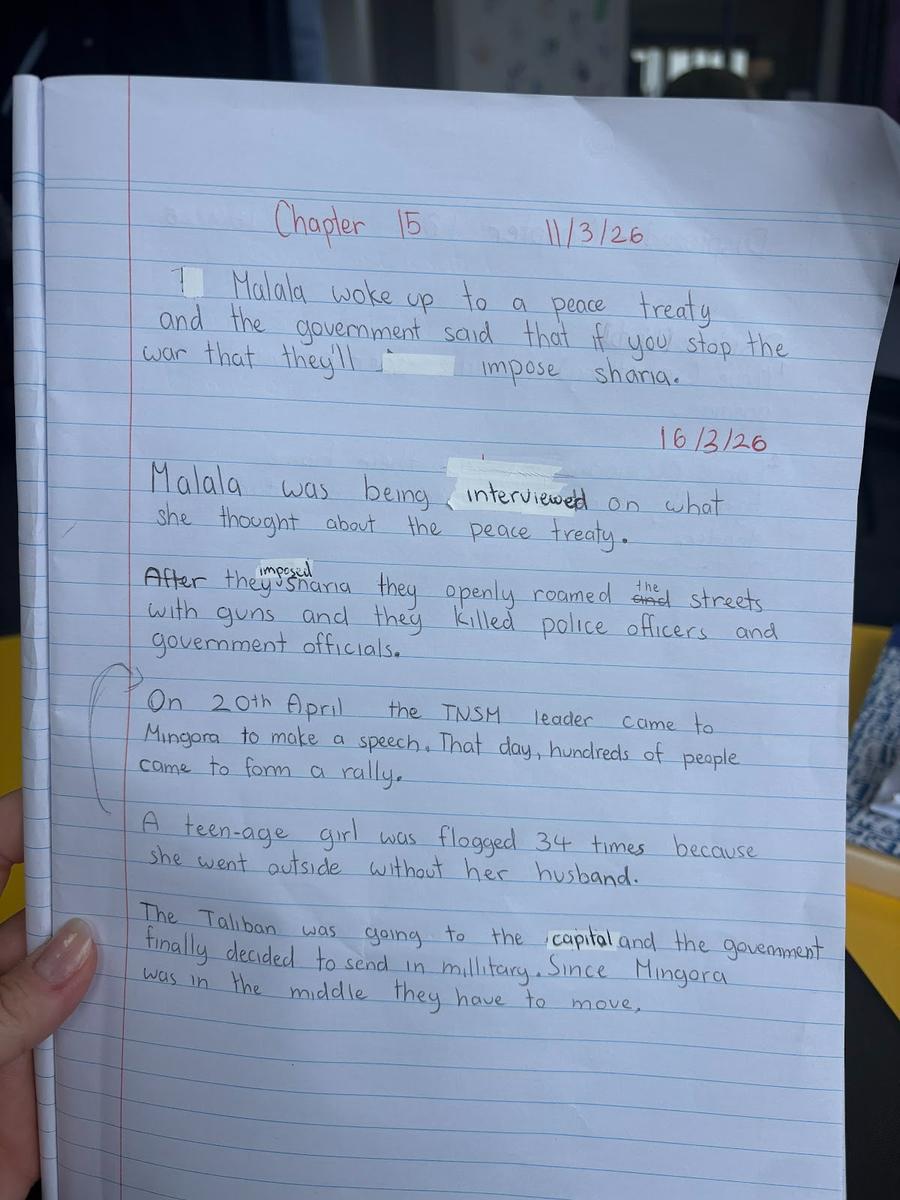 Chapter 15 11/3/26
Malala woke up to a peace treaty
and the government said that if you stop the
war that they'll impose sharia.
16/3/26
Malala was being interviewed on what
she thought about the peace treaty.
After they imposed sharia they openly roamed and the streets
with guns and they killed police officers and
government officials.
On 20th April the TNSM leader came to
Mingora to make a speech. That day, hundreds of people
came to form a rally.
A teen-age girl was flogged 34 times because
she went outside without her husband.
The Taliban was going to the capital and the government
finally decided to send in millitary. Since Mingora
was in the middle they have to move,